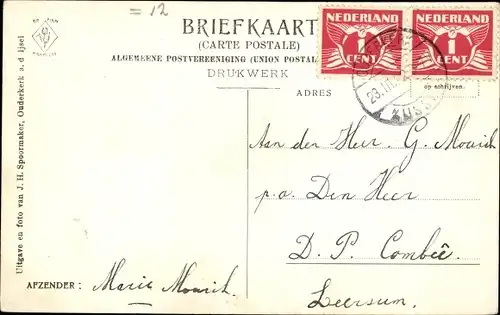 = 12
BRIEFKAART
(CARTE POSTALE)
ALGEMEENE POSTVEREENIGING (UNION POSTAL
DRUKWERK
NEDERLAND
1
CENT
NEDERLAND
1
CENT
op schrijven.
ADRES
Aan der Heer G. Mourik
p.a. Den Heer
D. P. Combeê
Leersum.
AFZENDER: Marie Mourik.
Uitgave en foto van J. H. Spoormaker, Ouderkerk a. d. Ijsel